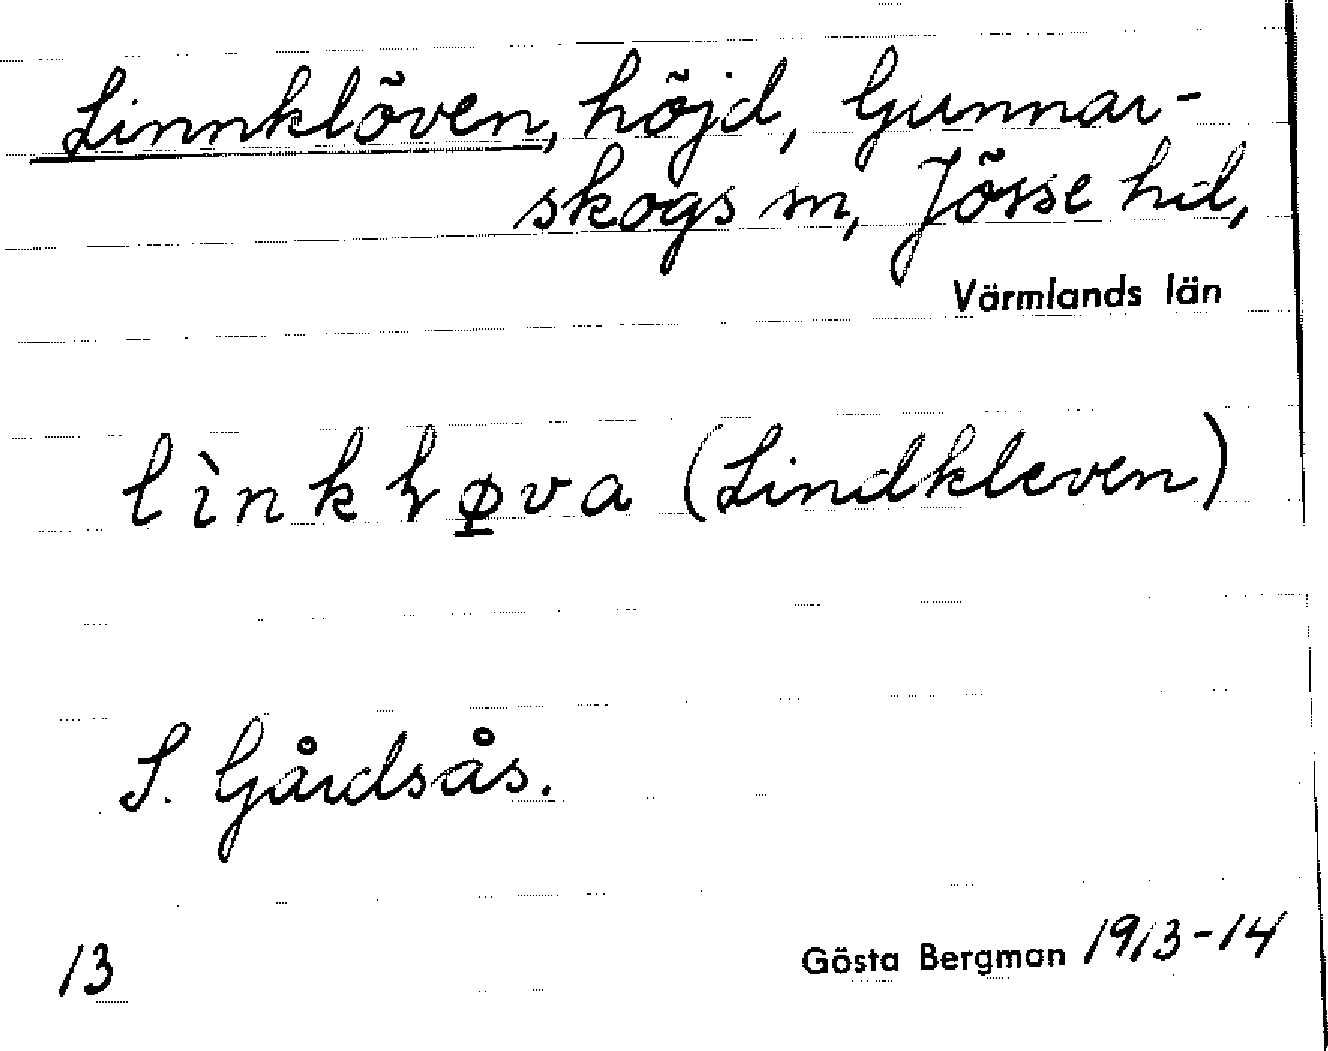 Linnklöven, höjd, Gunnar-
skogs sn, Jösse hd,
Värmlands län
lìnkɽø̲va (Lindkleven)
S. Gårdsås.
13
Gösta Bergman 1913-14